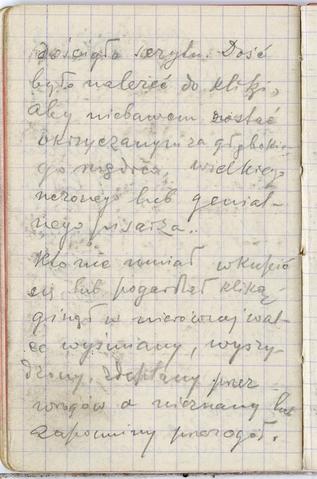 dościgło szczytu. Dość
było należeć do kliki,
aby niebawem zostać
okrzyczanym za głębokie-
go mędrca, wielkiego
uczonego lub genial-
nego pisarza.
Kto nie umiał wkupić
się lub pogardzał kliką,
ginął w nierównej wal-
ce wyśmiany, wyszy-
dzony, zdeptany przez
wrogów a nieznany lub
zapomniany przez ogół.